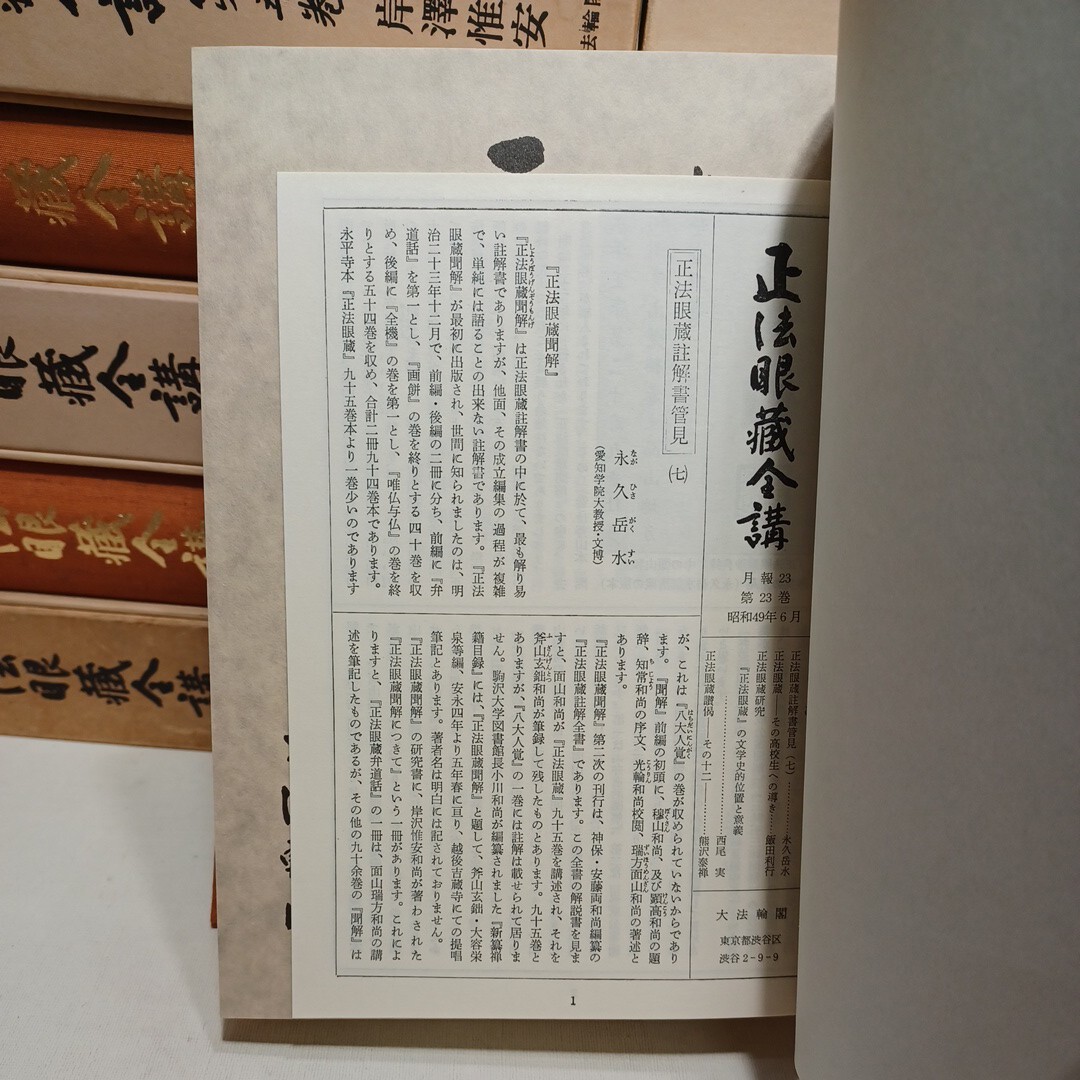 岸澤惟安
藏全講
眼藏全講
眼藏全講
法眼藏全講
正法眼藏全講
月報23
第23巻
昭和49年6月
正法眼蔵註解書管見(七)………永久岳水
正法眼蔵――その高校生への導き………飯田利行
正法眼蔵研究
『正法眼蔵』の文学史的位置と意義
………西尾 実
正法眼蔵讃偈――その十二――………熊沢泰禅
大法輪閣
東京都渋谷区
渋谷2-9-9
正法眼蔵註解書管見(七)
永久岳水
なが ひさ がく すい
(愛知学院大教授・文博)
『正法眼蔵聞解』
『正法眼蔵聞解』は正法眼蔵註解書の中に於て、最も解り易
しょうぼうげんぞうもんげ
い註解書でありますが、他面、その成立編集の過程が複雑
で、単純には語ることの出来ない註解書であります。『正法
眼蔵聞解』が最初に出版され、世間に知られましたのは、明
治二十三年十二月で、前編・後編の二冊に分ち、前編に『弁
道話』を第一とし、『画餅』の巻を終りとする四十巻を収
め、後編に『全機』の巻を第一とし、『唯仏与仏』の巻を終
りとする五十四巻を収め、合計二冊九十四巻本であります。
永平寺本『正法眼蔵』九十五巻本より一巻少いのであります
が、これは『八大人覚』の巻が収められていないからであり
はちだいにんがく
ます。『聞解』前編の初頭に、穆山和尚、及び顕高和尚の題
ぼくさん
辞、知常和尚の序文、光輪和尚校閲、瑞方面山和尚の著述と
ちじょう
こうりん
ずいほうめんざん
あります。
『正法眼蔵聞解』第二次の刊行は、神保・安藤両和尚編纂の
『正法眼蔵註解全書』であります。この全書の解説書を見ま
すと、面山和尚が『正法眼蔵』九十五巻を講述され、それを
斧山玄鈯和尚が筆録して残したものとあります。九十五巻と
ふざんげんとつ
ありますが、『八大人覚』の一巻には註解は載せられて居りま
せん。駒沢大学図書館長小川和尚が編纂されました『新纂禅
籍目録』には、『正法眼蔵聞解』と題して、斧山玄鈯・大容栄
泉等編、安永四年より五年春に亘り、越後吉蔵寺にての提唱
筆記とあります。著者名は明白には記されておりません。
『正法眼蔵聞解』の研究書に、岸沢惟安和尚が著わされた
『正法眼蔵聞解につきて』という一冊があります。これによ
りますと、『正法眼蔵弁道話』の一冊は、面山瑞方和尚の講
述を筆記したものであるが、その他の九十余巻の『聞解』は
1